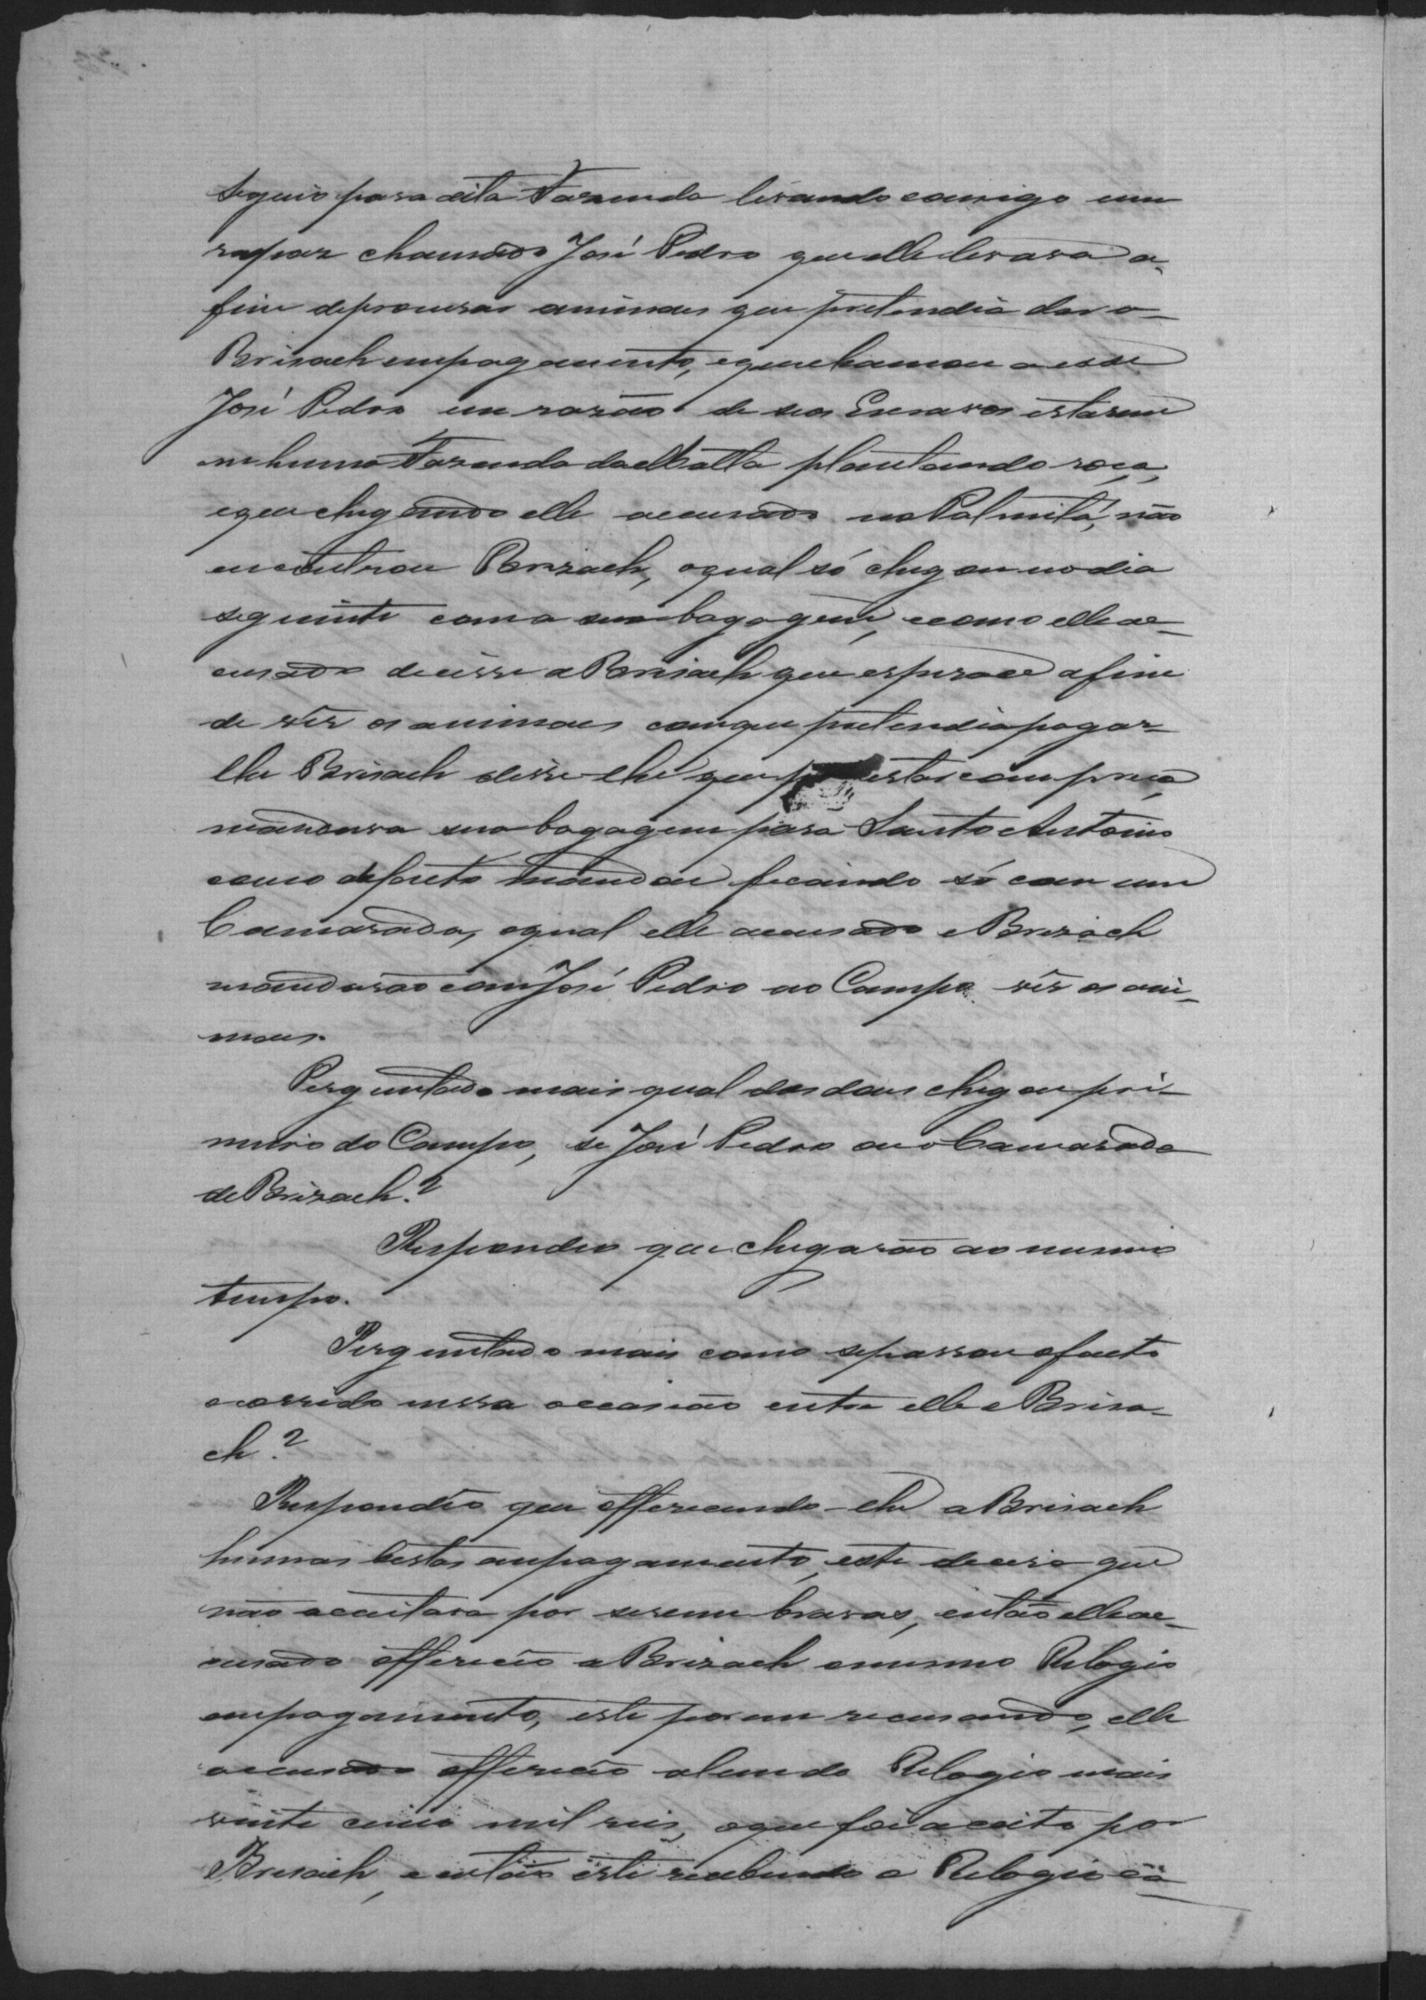 seguio para dita Fazenda levando comsigo um
rapaz chamado José Pedro que elle levava a-
fim de procurar animaes que pretendia dar a
Brizach em pagamento, e que chamou a esse
José Pedro em razão de seos Escravos estarem
em huma Fazenda da Matta plantando roça,
e que chegando elle accusado no Palmital, não
encontrou Brizach, o qual só chegou no dia
seguinte com a sua bagagem, e como elle ac-
cusado dicesse a Brizach que esperace afim
de vêr os animaes com que pretendia pagar-
lhe Brizach disse-lhe que estar com preça
mandava sua bagagem para Santo Antonio
como de facto mandou ficando só com um
Camarada, o qual elle accusado e Brizach
mandarão com José Pedro ao Campo vêr os ani-
maes.
Perguntado mais qual dos dous chegou pri-
meiro do Campo, se José Pedro ou o Camarada
de Brizach?
Respondeo que chegarão ao mesmo
tempo.
Perguntado mais como se passou o facto
ocorrido nessa occasião entre elle e Briza-
ch?
Respondêo que offerecendo-lhe a Brizach
humas bestas em pagamento, este dicera que
não aceitava por serem bravas, então elle ac-
cusado offereceo a Brizach o mesmo Relogio
em pagamento, este porem recusando, elle
accusado offereceo alem do Relogio mais
vinte cinco mil reis, o que foi aceito por
Brizach, e então este recebendo o Relogio co-